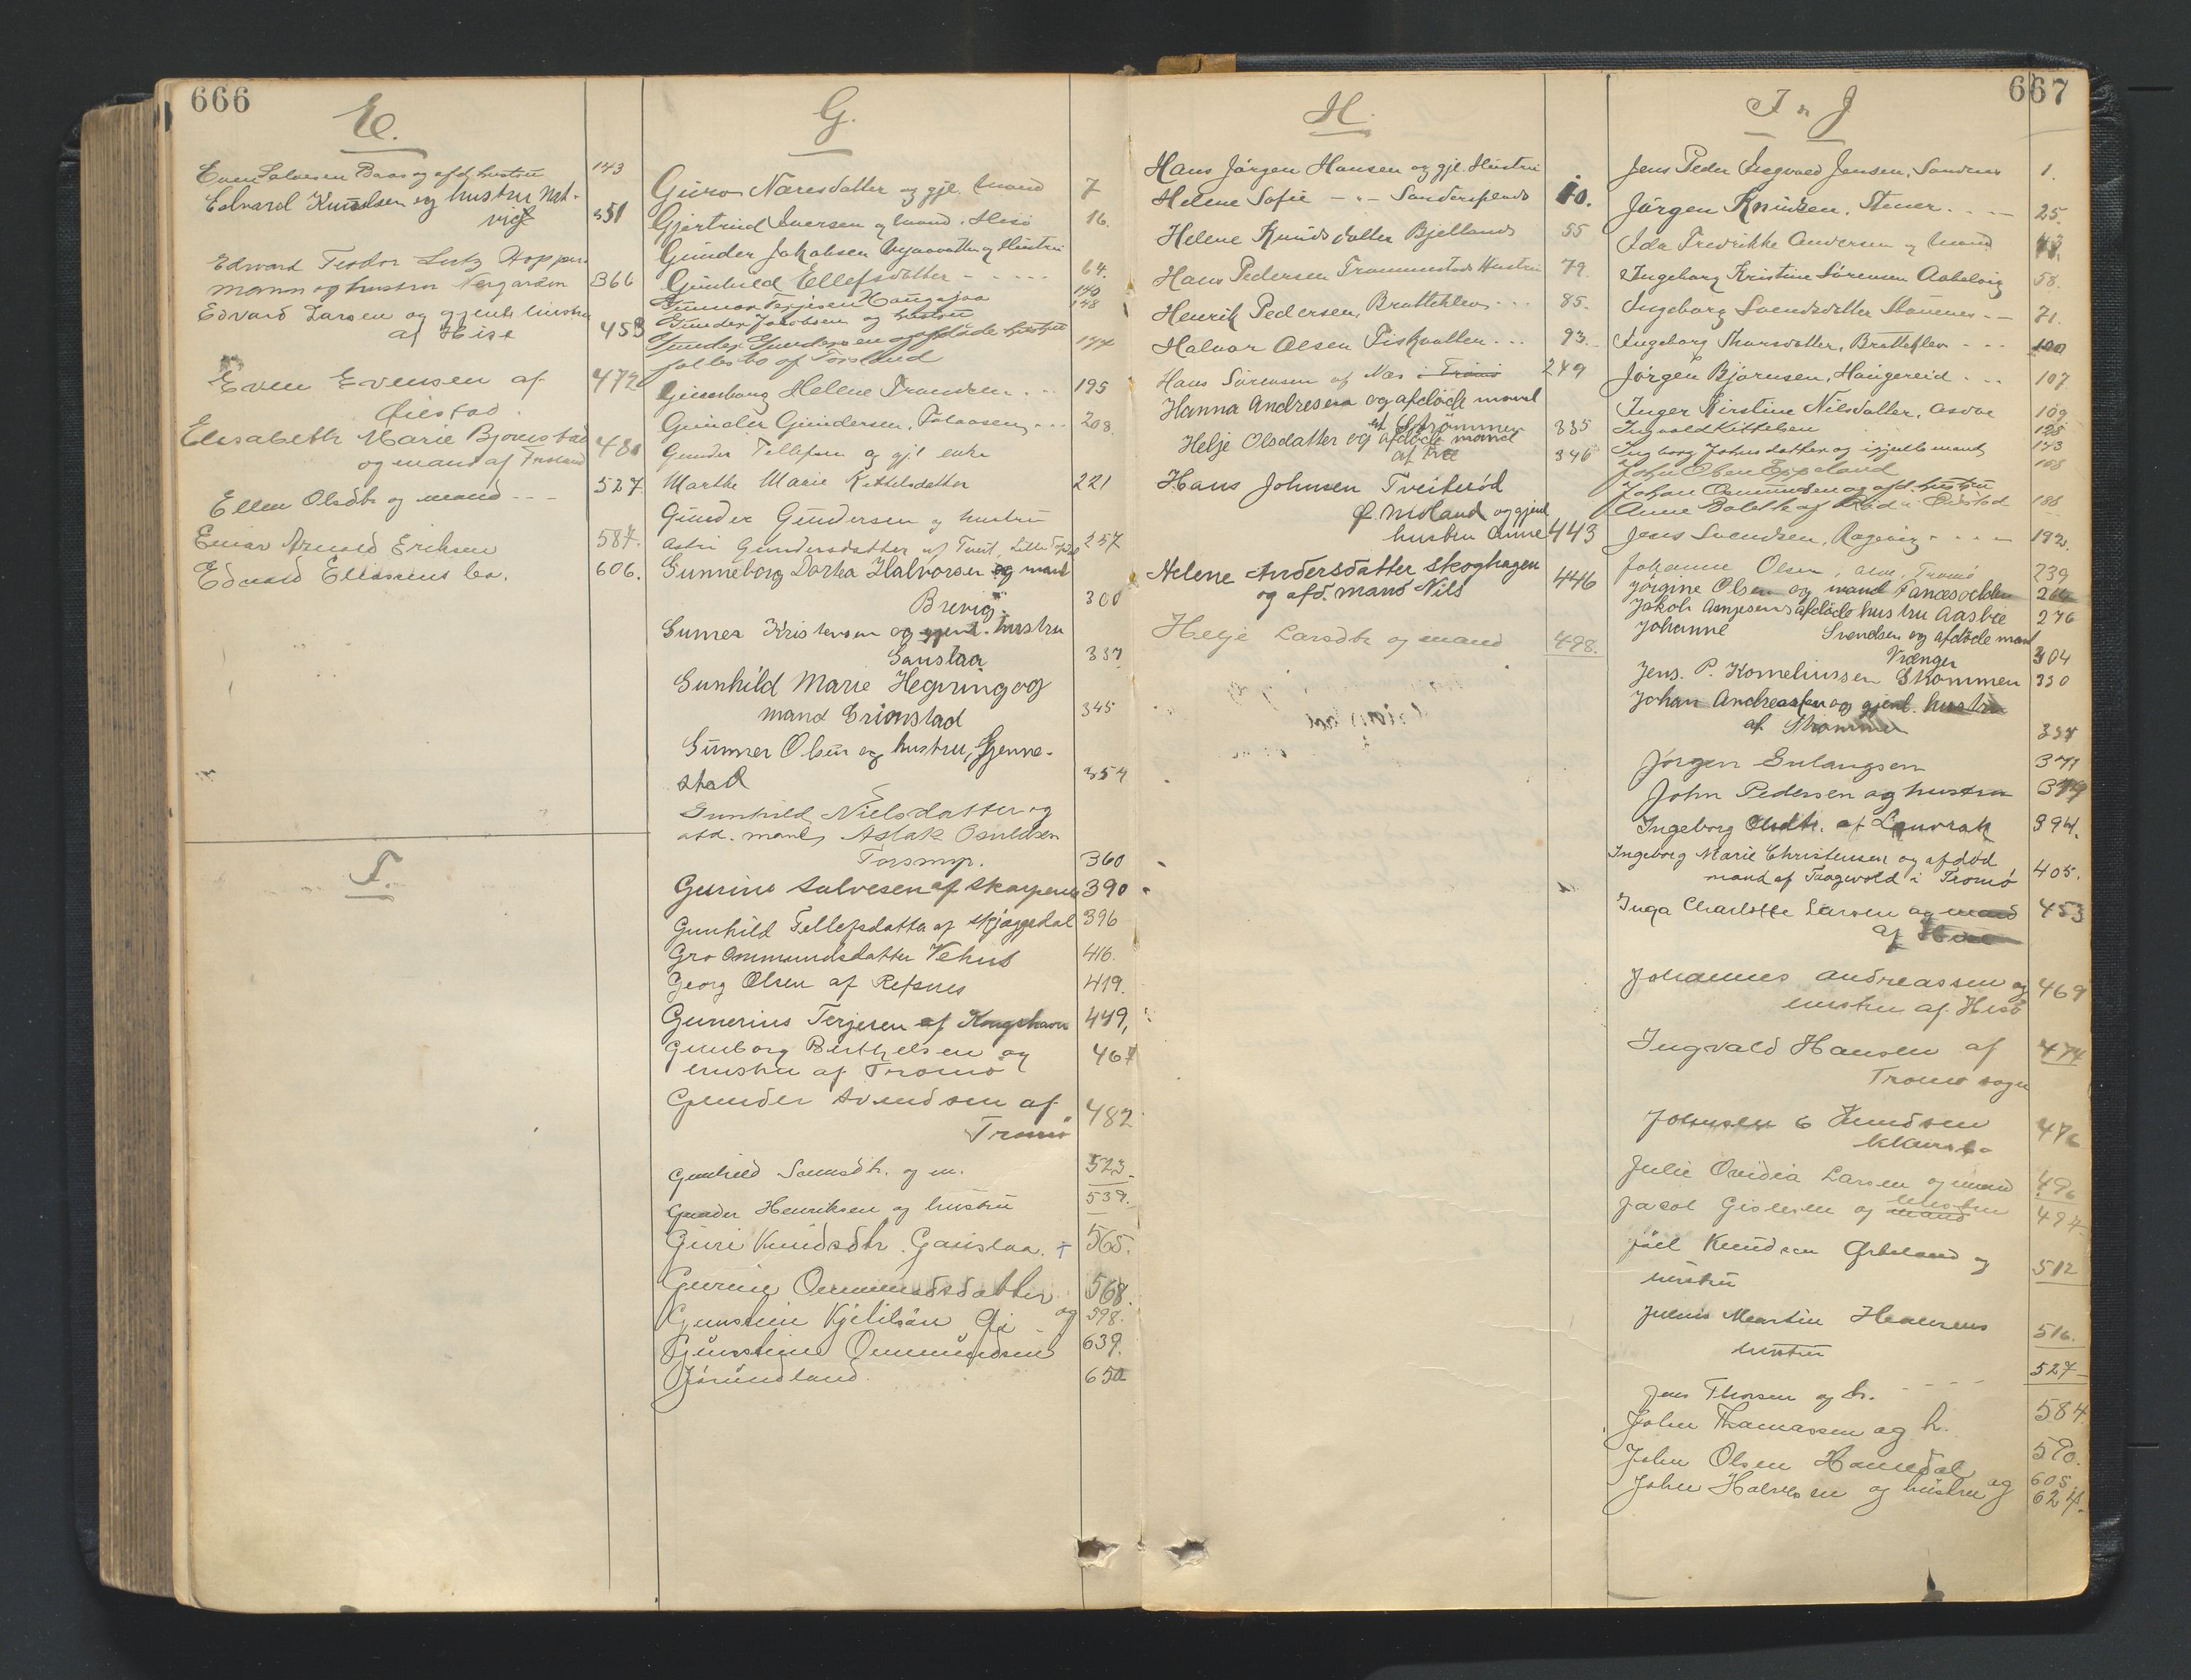 666
E.
Even Salvesen Baas og afd. hustru 143
Edvard Knudsen og hustru Nat-
vig 351
Edvard Teodor Lutz Hopper-
mann og hustru Nergarden 366
Edvard Larsen og gjenl. hustru
af Hisø 453
Even Evensen af 472
Øiestad.
Elisabeth Marie Bjornstad 480
og mand af Froland
Ellen Olsdtr og mand - - - 527.
Einar Arnold Eriksen 587.
Edvard Eliassens bo. 606.
F.
G.
Guro Næresdatter og gjl. Mand 7
Gjertrud Iversen og mand. Hisø 16.
Gunder Jakobsen og Hustru 64.
Gunhild Ellefsdatter - - - - - 140
Gunnar Terjesen Haugsjaa 148
Gunder Jacobsen og hustru
Gunder Gundersen og afdøde hustru 177
fællesbo af Froland
Helene Frandsen . . . 195
Gunder Gundersen, . . . 208.
Gunder Tellefsen og gjl. enke
Marthe Marie Kettelsdatter 221
Gunder Gundersen og hustru
Astri Gundersdatter af Tveit, Lille 257
Gunneborg Dorthea Halvorsen og mand
Brevig. 300
Gunner Kristensen og gjenl. hustru
Gauslaa 337
Gunhild Marie Hegvring og
mand Grimstad 345
Gunner Olsen og hustru, Gjenne-
stad 354
Gunhild Nielsdatter og
afd. mand, Aslak Osuldsen
Torsmyr. 360
Gurine Salvesen af Skarpenes 390
Gunhild Tellefsdatter af Skjæggedal 396
Gro Ommundsdatter Vehus 416.
Georg Olsen af Refsnes 419.
Gunerius Terjesen af Kongshavn 449,
Gunborg Berthelsen og 467
hustru af Tromø
Gunder Svendsen af 482
Tromø
Gunhild Samsdtr. og m. 523.
Gunder Henriksen og hustru 539.
Guri Knudsdtr. Gauslaa. + 565.
Gurine Ommundsdatter 568.
Gunstein Kjetilsen og 598.
Gunstein Ommundsen 639.
Jørundland. 650
667
H.
Hans Jørgen Hansen og gjl. Hustru
Helene Sofie - „ - 10.
Helene Knudsdatter Bjelland 55
Hans Pedersen Trommestad Hustru 79.
Henrik Pedersen, Bratteklev. . . 85.
Halvor Olsen Fiskvatten . . . 93.
Hans Sørensen af Næs i Tromø 249
Hanna Andresen og afdøde mand
af Strømmen 335
Helje Olsdatter og afdøde mand
af Træ 346
Hans Johnsen Tveiterød
Ø. Moland og gjenl.
hustru Anne 443
Helene Andersdatter Skoghagen
og afd. mand Nils 446
Helje Larsdtr og mand 498.
I „ J
Jens Peder Ingvald Jensen, Sandnes 1.
Jørgen Knudsen, Stener. . . - 25.
Ida Fredrikke Andersen og Mand 43.
Ingeborg Kristine Sørensen Aakelvig 58.
Ingeborg Svendsdatter - - 71.
Ingeborg Thorsdatter, Bratteklev - - - 100
Jørgen Bjørnsen, Haugereid . . . 107.
Inger Kirstine Nilsdatter, Asdal 109
Ingvald Kittelsen 125
Ingborg Johnsdatter og igjenl. mand 143
John Olsen Eppeland 168
Johan Osmundsen og afd. hustru
Anne Bolette af Rød i Øiestad 186
Jens Svendsen, Rægevig - - - - 192.
Johanne Olsen, Alve, Tromø 239
Jørgine Olsen og mand Fanesodden 264
Jakob Asmjesens afdøde hustru Aasbie 276
Johanne Svendsen og afdøde mand
Vrænger 304
Jens. P. Korneliussen Skommen 330
Johan Andreassen og gjenl. hustru
af Strømmen 337
Jørgen Erlangsen 371
John Pedersen og hustru 379
Ingeborg Olsdtr. af Lauvrak 394.
Ingeborg Marie Christensen og afdød
mand af Taagvold i Tromø 405.
Inga Charlotte Larsen og mand 453
af Hisø
Johannes Andreassen og 469
hustru af Hisø
Ingvald Hansen af 474
Tromø sogn
Johnsen & Knudsen 476
Julie Ovidia Larsen og mand 496
hustru
Jacob Gislesen og mand 497
Joel Knudsen Ørbeland og 512
hustru
Julius Martin Hansens 516.
hustru
Jens Thorsen og h. - - - - 527
John Thomassen og h. 584
John Olsen Hamedal og 590.
605
John Halvorsen og hustru 624.